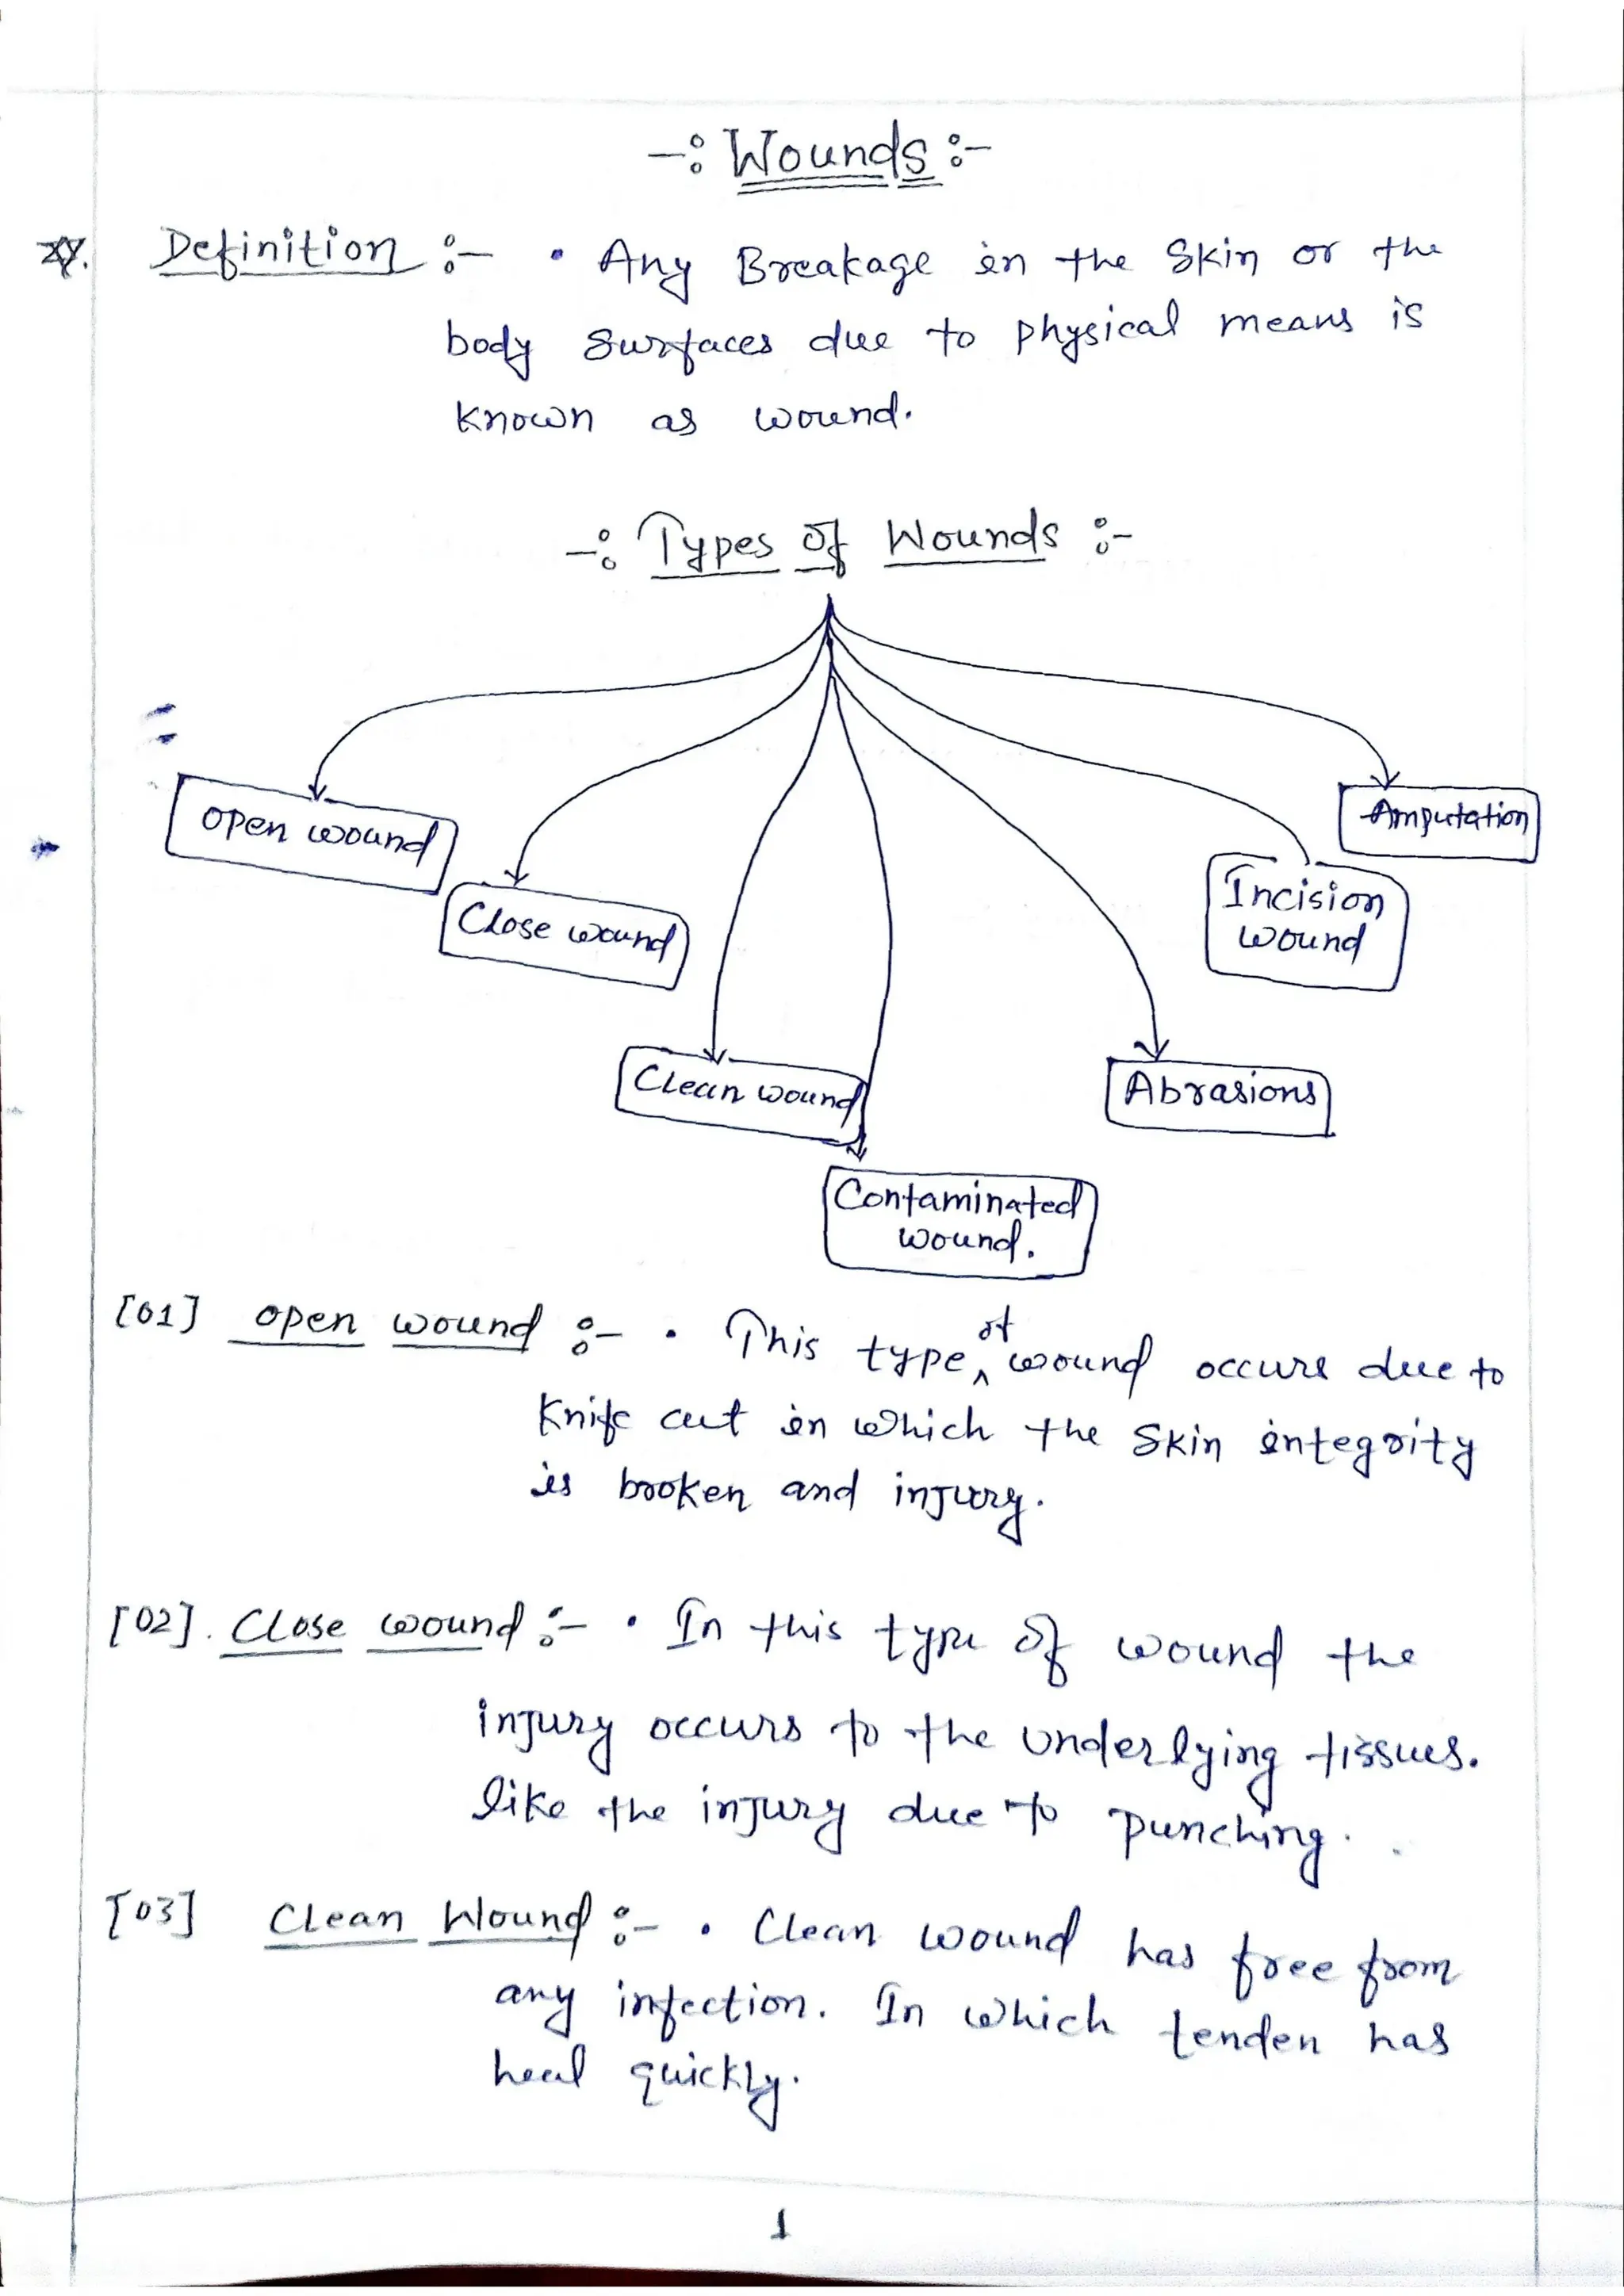 -: Wounds :-
Definition :- • Any Breakage in the Skin or the
body surfaces due to physical means is
known as wound.
-: Types of Wounds :-
open wound
Close wound
Clean wound
Contaminated
wound.
Abrasions
Incision
wound
Amputation
[01] open wound :- • This type of wound occurs due to
Knife cut in which the skin integrity
is broken and injury.
[02]. Close wound :- • In this type of wound the
injury occurs to the underlying tissues.
like the injury due to punching.
[03] Clean Wound :- • Clean wound has free from
any infection. In which tenden has
heal quickly.
1